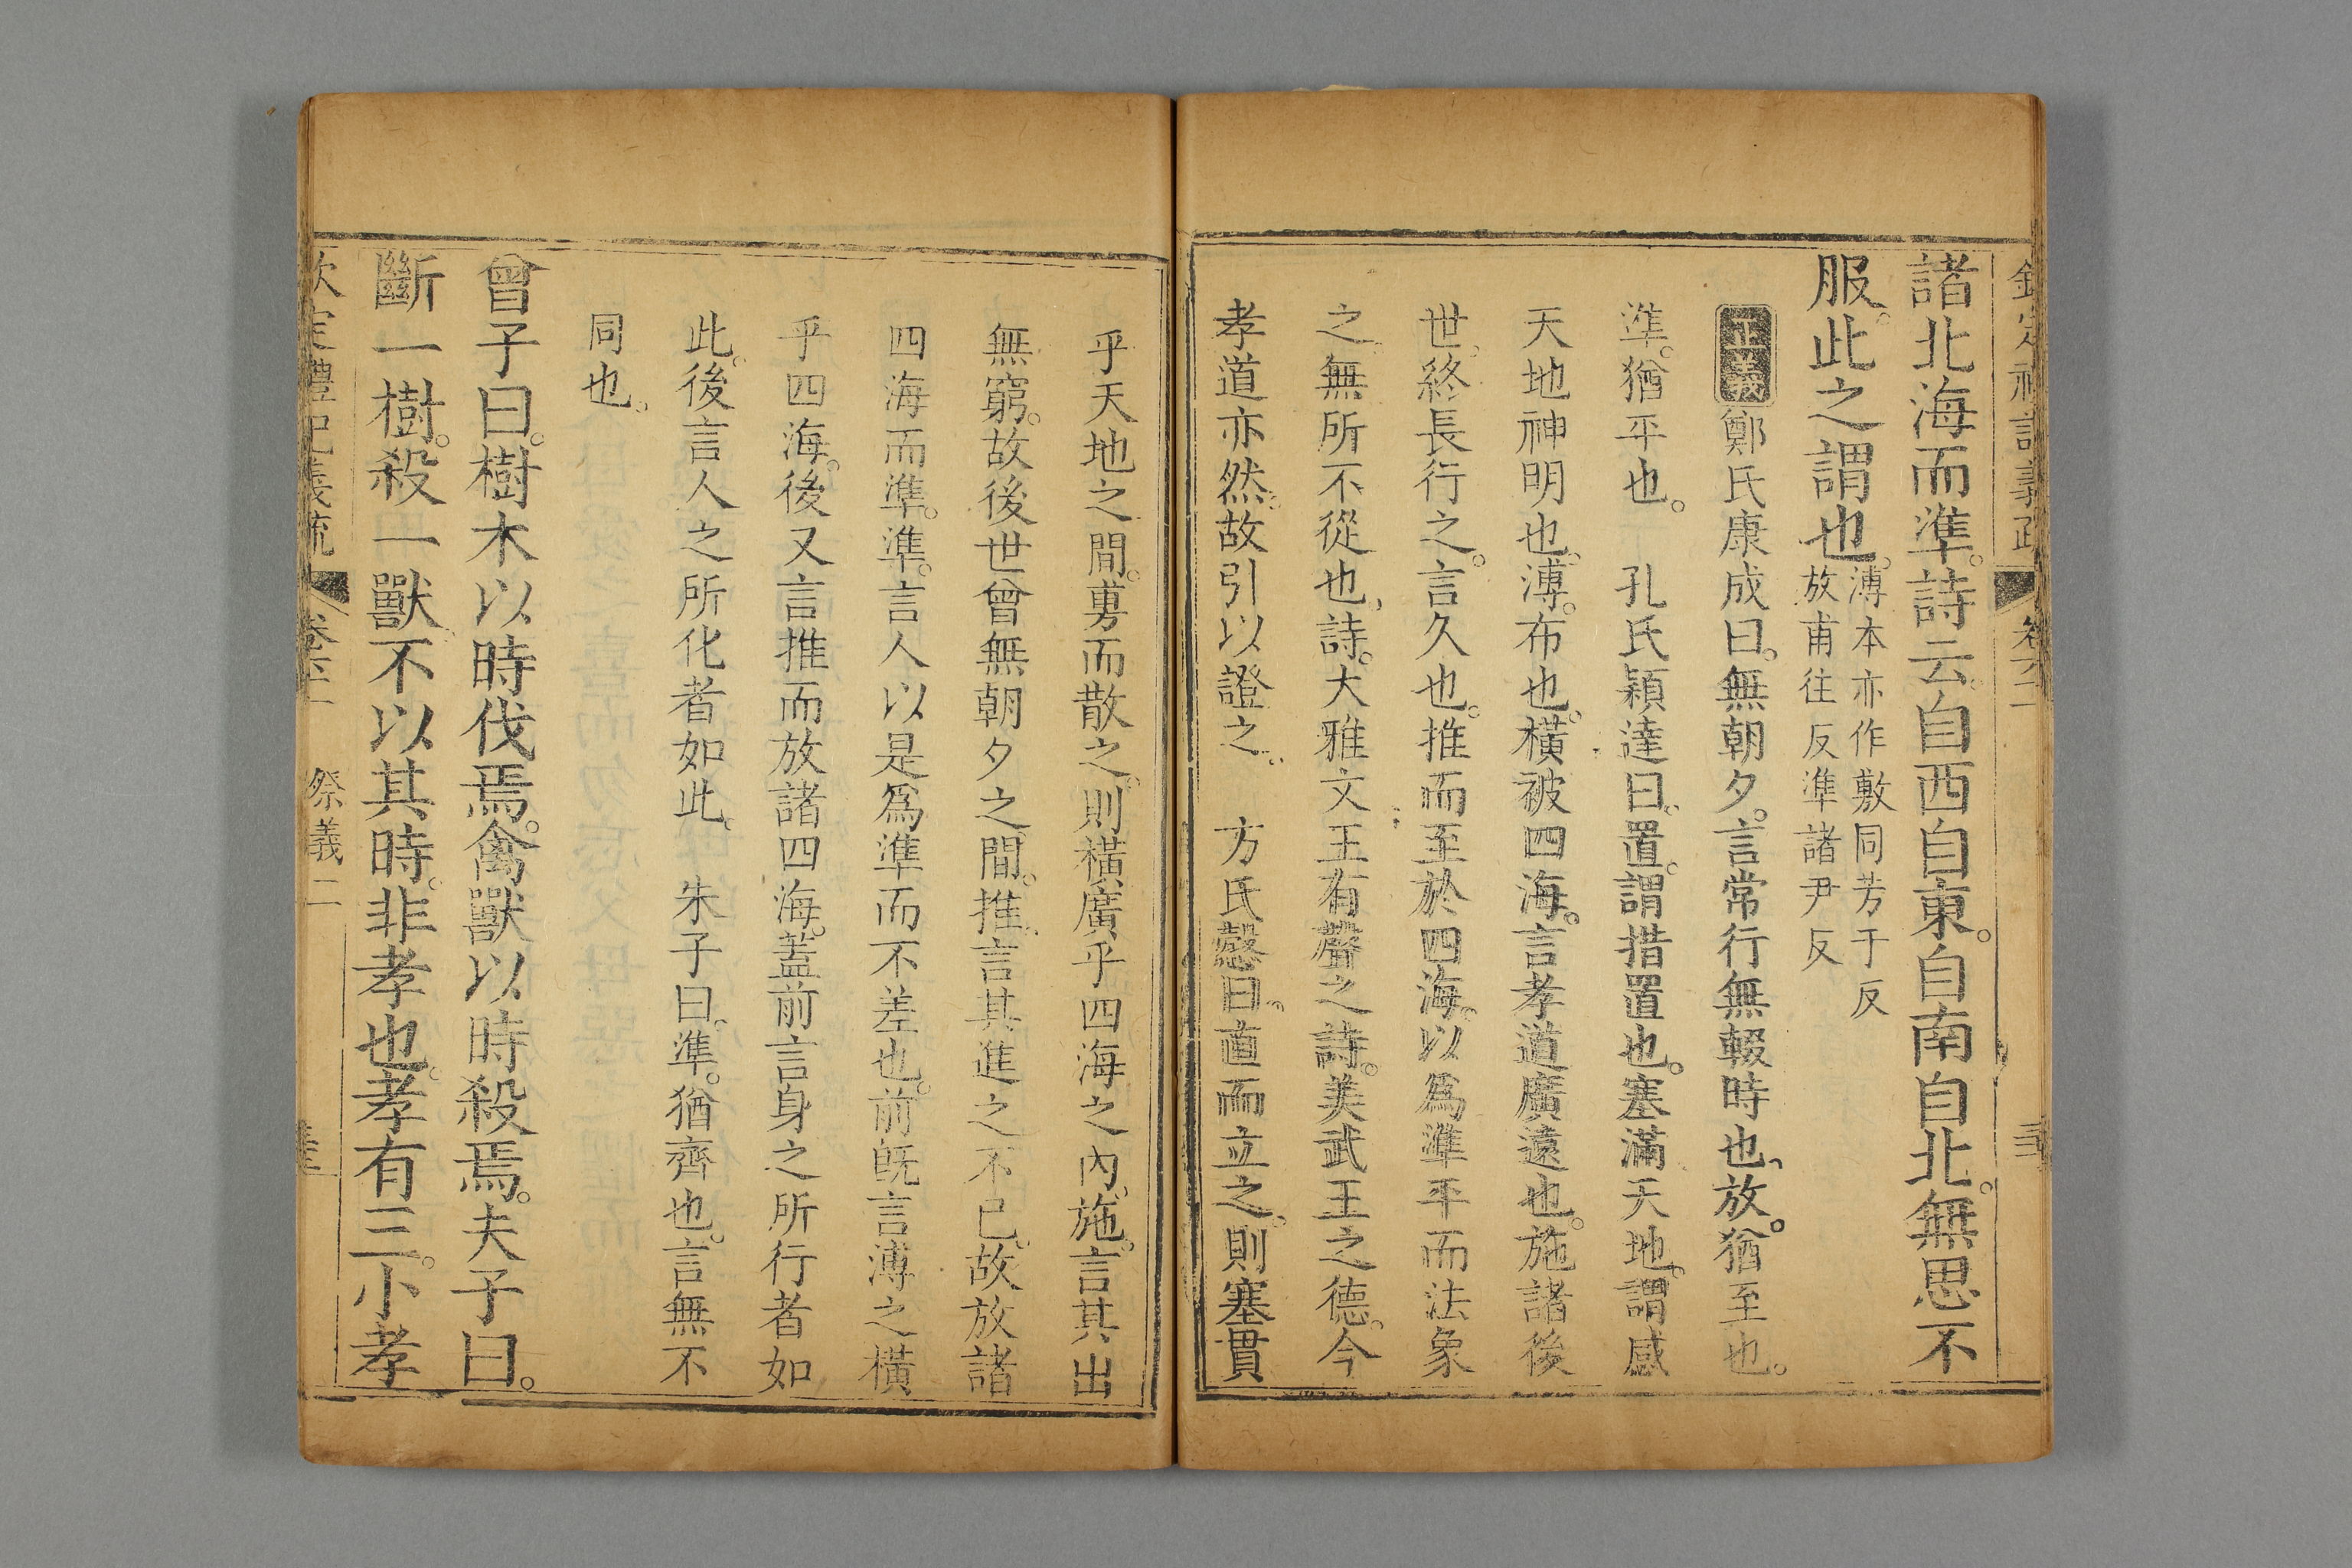 諸北海而準。詩云。自西自東。自南自北。無思不
服。此之謂也。溥本亦作敷同芳于反
放甫往反準諸尹反
正義鄭氏康成曰。無朝夕。言常行無輟時也。放。猶至也。
準。猶平也。 孔氏穎達曰。置。謂措置也。塞滿天地。謂感
天地神明也。溥。布也。橫被四海。言孝道廣遠也。施諸後
世。終長行之。言久也。推而至於四海。以爲準平而法象
之無所不從也。詩。大雅文王有聲之詩。美武王之德。今
孝道亦然。故引以證之。 方氏慤曰。直而立之。則塞貫
乎天地之間。旉而散之。則橫廣乎四海之內。施。言其出
無窮。故後世曾無朝夕之間。推。言其進之不已。故放諸
四海而準。準。言人以是爲準而不差也。前旣言溥之橫
乎四海。後又言推而放諸四海。蓋前言身之所行者如
此。後言人之所化者如此。 朱子曰。準。猶齊也。言無不
同也。
曾子曰。樹木以時伐焉。禽獸以時殺焉。夫子曰。
斷一樹。殺一獸。不以其時。非孝也。孝有三。小孝
欽定禮記義疏 卷六十一 祭義二